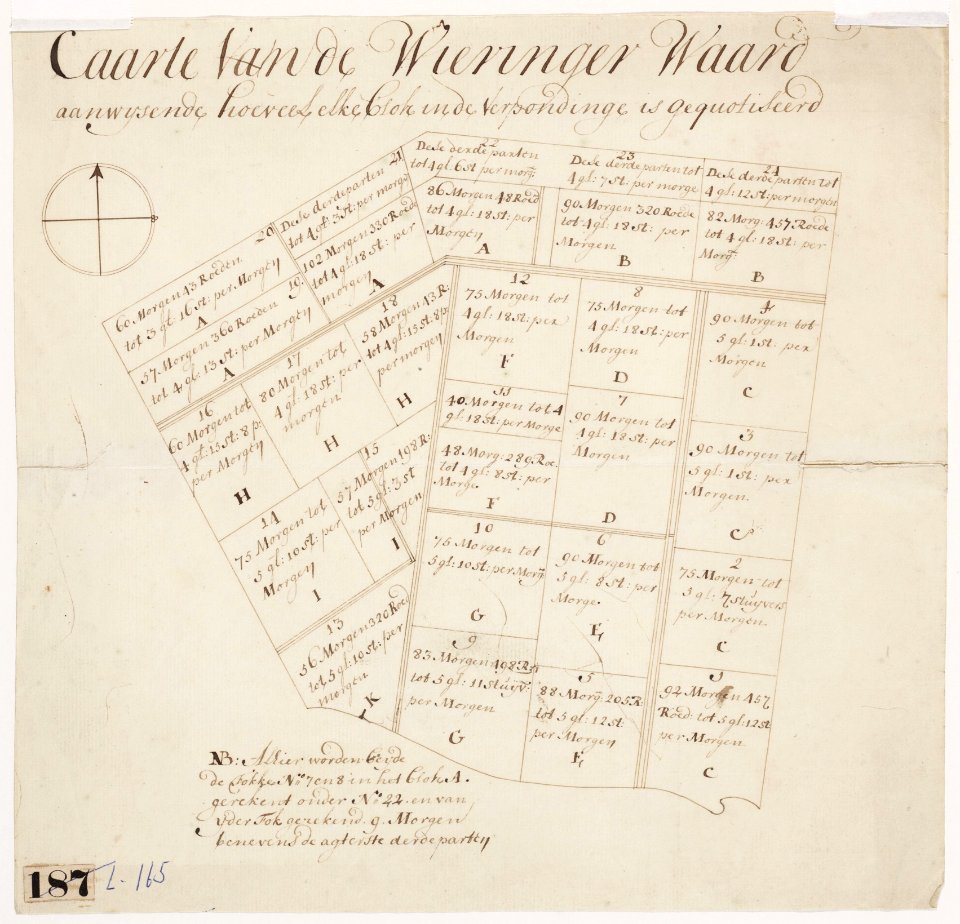 Caarte Van de Wieringer Waard
aanwysende hoeveel elke Clok in de Verpondinge is gequotiseerd
20
60 Morgen 43 Roeden
tot 3 gl: 16 st: per Morgen
A
19
57 Morgen 360 Roeden
tot 4 gl: 13 St: per Morgen
A
21
Dese derde parten
tot 4 gl: 3 st: per morge
102 Morgen 330 Roede
tot 4 gl: 18 st: per
morgen
A
22
Dese derde parten
tot 4 gl: 6 st per morg:
86 Morgen 48 Roed
tot 4 gl: 18 St: per
Morgen
A
23
Dese derde parten tot
4 gl: 7 St: per morge
90 Morgen 320 Roede
tot 4 gl: 18 St: per
Morgen
B
24
Dese derde parten tot
4 gl: 12 St: per morgen
82 Morg: 457 Roede
tot 4 gl: 18 St: per
Morg:
B
16
60 Morgen tot
4 gl: 15 St: 8 p:
per Morgen
H
17
80 Morgen tot
4 gl: 18 st: per
morgen
H
18
58 Morgen 43 R:
tot 4 gl: 15 st: 8 p:
per morgen
H
14
75 Morgen tot
5 gl: 10 St: per
Morgen
I
15
57 Morgen 198 R:
tot 5 gl: 3 St
per Morgen
I
13
56 Morgen 320 Roed
tot 5 gl: 10 st: per
morgen
K
12
75 Morgen tot
4 gl: 18 St: per
Morgen
F
11
40 Morgen tot 4
gl: 18 St: per Morge
48 Morg: 289 Roe.
tot 4 gl: 8 st: per
Morge.
F
10
75 Morgen tot
5 gl: 10 St: per Morg:
G
9
83 Morgen 198 R:
tot 5 gl: 11 Stuyv:
per Morgen
G
8
75 Morgen tot
4 gl: 18 St: per
Morgen
D
7
90 Morgen tot
4 gl: 18 St: per
Morgen
D
6
90 Morgen tot
5 gl: 8 St: per
Morge.
E
5
88 Morg: 205 R:
tot 5 gl: 12 st:
per Morgen
E
4
90 Morgen tot
5 gl: 1 st: per
Morgen
C
3
90 Morgen tot
5 gl: 1 st: per
Morgen.
C
2
75 Morgen tot
5 gl: 7 stuyvers
per Morgen.
C
1
92 Morgen 457
Roed: tot 5 gl: 12 st
per Morgen.
C
NB: Alhier worden beyde
de Fokke No. 7 en 8 in het Clok A.
gerekent onder No. 22. en van
yder Fok gerekend. 9. Morgen
benevens de agterste derde parten
187
2-165